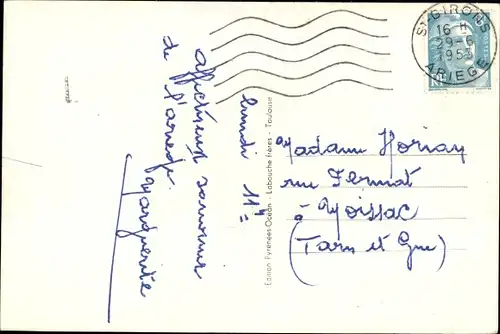 lundi 11h
affectueux souvenirs
de l'Ariège.
Marguerite
Edition Pyrénées-Océan - Labouche Frères - Toulouse
ST-GIRONS
16 H
9-6
1953
ARIEGE
POSTES
Madame
rue Fermat
à Moissac
(Tarn et Gne)